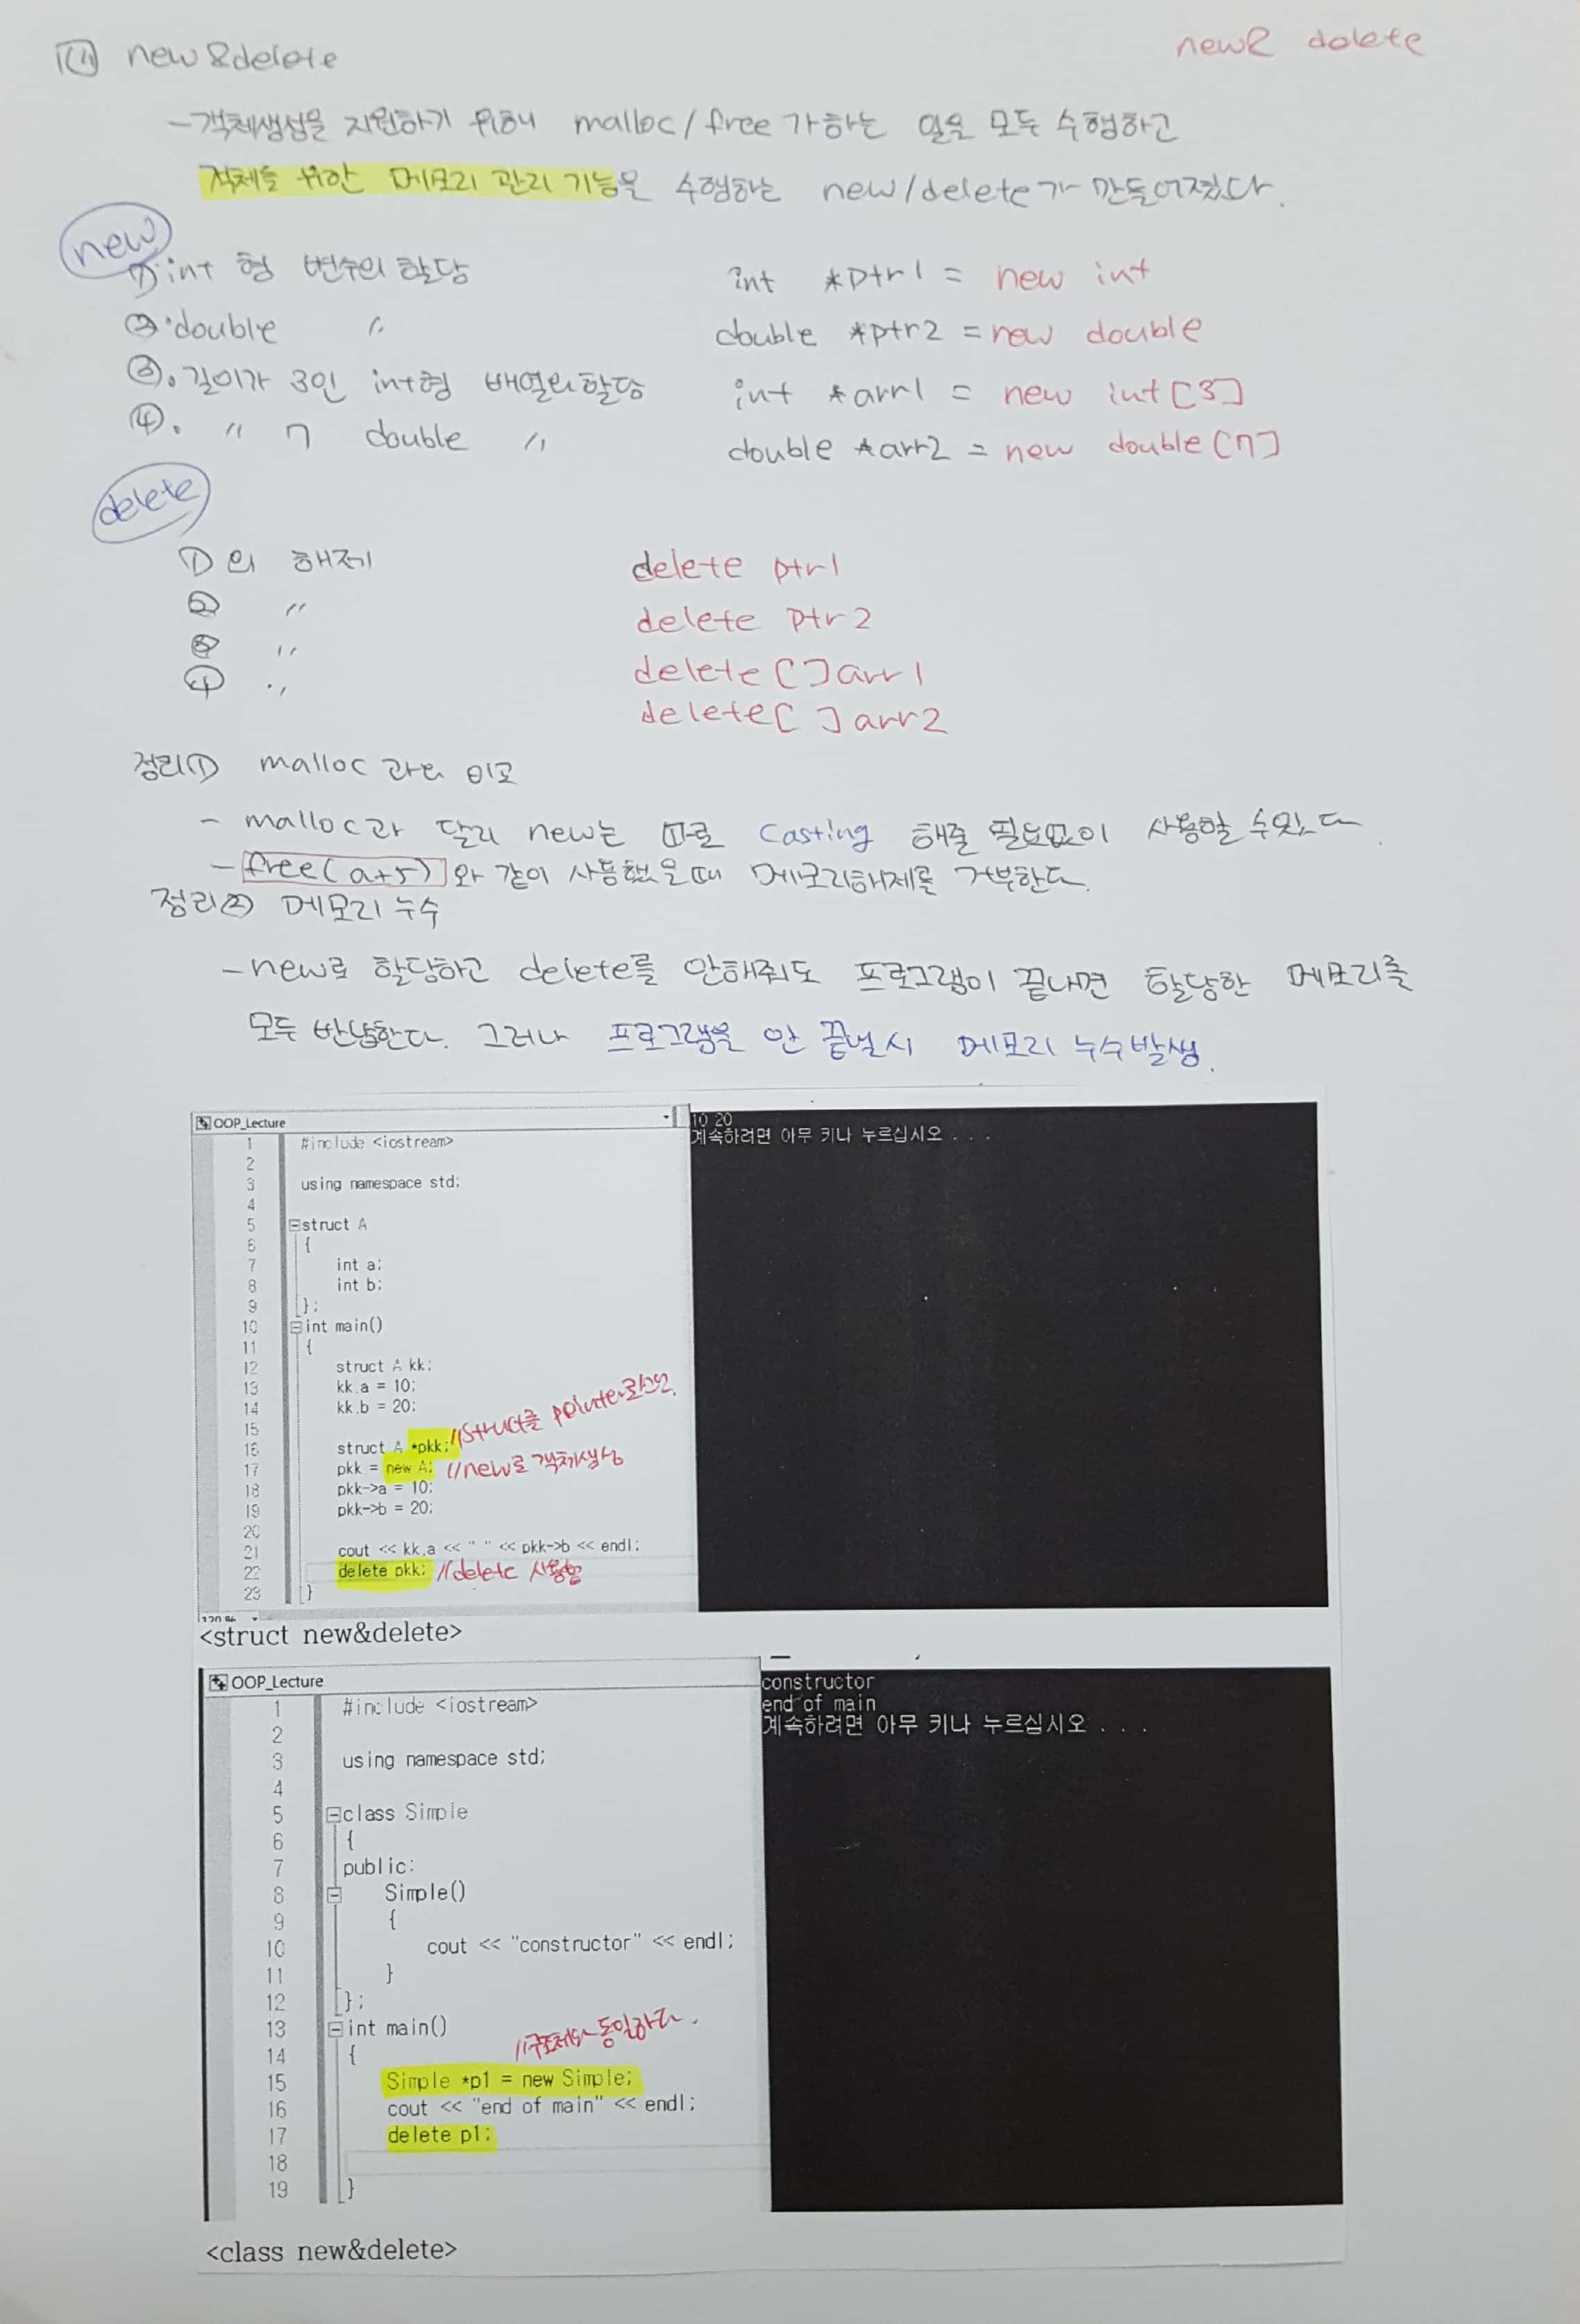 ⑭ new&delete
new와 delete
- 객체생성을 지원하기 위해 malloc/free가하는 일은 모두 수행하고
객체를 위한 메모리 관리 기능을 수행하는 new/delete가 만들어졌다.
new
① int 형 변수의 할당 int *ptr1 = new int
② double 〃 double *ptr2 = new double
③. 길이가 3인 int형 배열의할당 int *arr1 = new int[3]
④. 〃 7 double 〃 double *arr2 = new double[7]
delete
①의 해제 delete ptr1
② 〃 delete ptr2
③ 〃 delete[]arr1
④ 〃 delete[ ]arr2
정리① malloc 과의 비교
- malloc과 달리 new는 따로 casting 해줄 필요없이 사용할 수있다
- free(a+5)와 같이 사용했을때 메모리해제를 거부한다.
정리② 메모리 누수
- new로 할당하고 delete를 안해줘도 프로그램이 끝나면 할당한 메모리를
모두 반납한다. 그러나 프로그램을 안 끝낼시 메모리 누수발생.
OOP_Lecture
1 #include <iostream>
2
3 using namespace std;
4
5 struct A
6 {
7 int a;
8 int b;
9 };
10 int main()
11 {
12 struct A kk;
13 kk.a = 10;
14 kk.b = 20;
15
16 struct A *pkk; //struct를 pointer로선언.
17 pkk = new A; //new로 객체생성
18 pkk->a = 10;
19 pkk->b = 20;
20
21 cout << kk.a << " " << pkk->b << endl;
22 delete pkk; //delete 사용함
23 }
120 %
10 20
계속하려면 아무 키나 누르십시오 . . .
<struct new&delete>
OOP_Lecture
1 #include <iostream>
2
3 using namespace std;
4
5 class Simple
6 {
7 public:
8 Simple()
9 {
10 cout << "constructor" << endl;
11 }
12 };
13 int main()
14 { //구조체와 동일하다.
15 Simple *p1 = new Simple;
16 cout << "end of main" << endl;
17 delete p1;
18
19 }
constructor
end of main
계속하려면 아무 키나 누르십시오 . . .
<class new&delete>